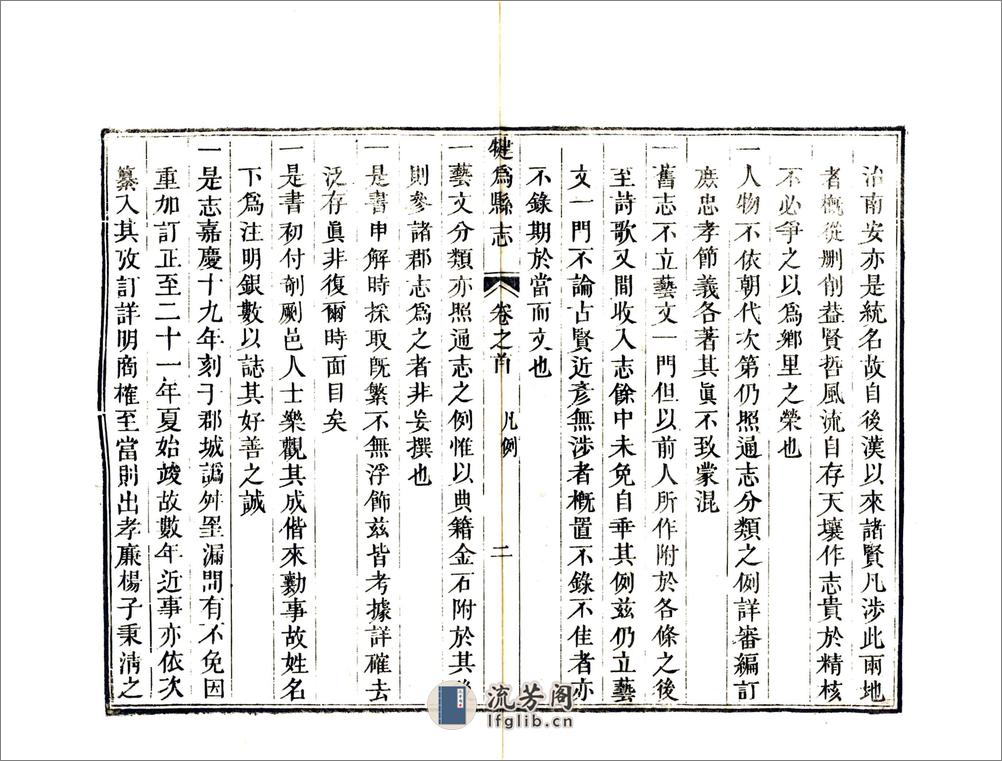 治南安亦是統名故自後漢以來諸賢凡涉此兩地
者槪從删削葢賢哲風流自存天壤作志貴於精核
不必爭之以爲鄉里之榮也
一人物不依朝代次第仍照通志分類之例詳審編訂
庶忠孝節義各著其眞不致蒙混
一舊志不立藝文一門但以前人所作附於各條之後
至詩歌又間收入志餘中未免自乖其例兹仍立藝
文一門不論古賢近彥無涉者槪置不錄不佳者亦
不錄期於當而文也
犍爲縣志 卷之首 凡例 二
一藝文分類亦照通志之例惟以典籍金石附於其後
則參諸郡志爲之者非妄撰也
一是書申解時採取旣繁不無浮飾兹皆考據詳確去
泛存眞非復爾時面目矣
一是書初付剞劂邑人士樂觀其成偕來勷事故姓名
下爲注明銀數以誌其好善之誠
一是志嘉慶十九年刻于郡城譌舛罣漏間有不免因
重加訂正至二十一年夏始竣故數年近事亦依次
纂入其攷訂詳明商榷至當則出孝廉楊子秉清之
流芳阁
lfglib.cn